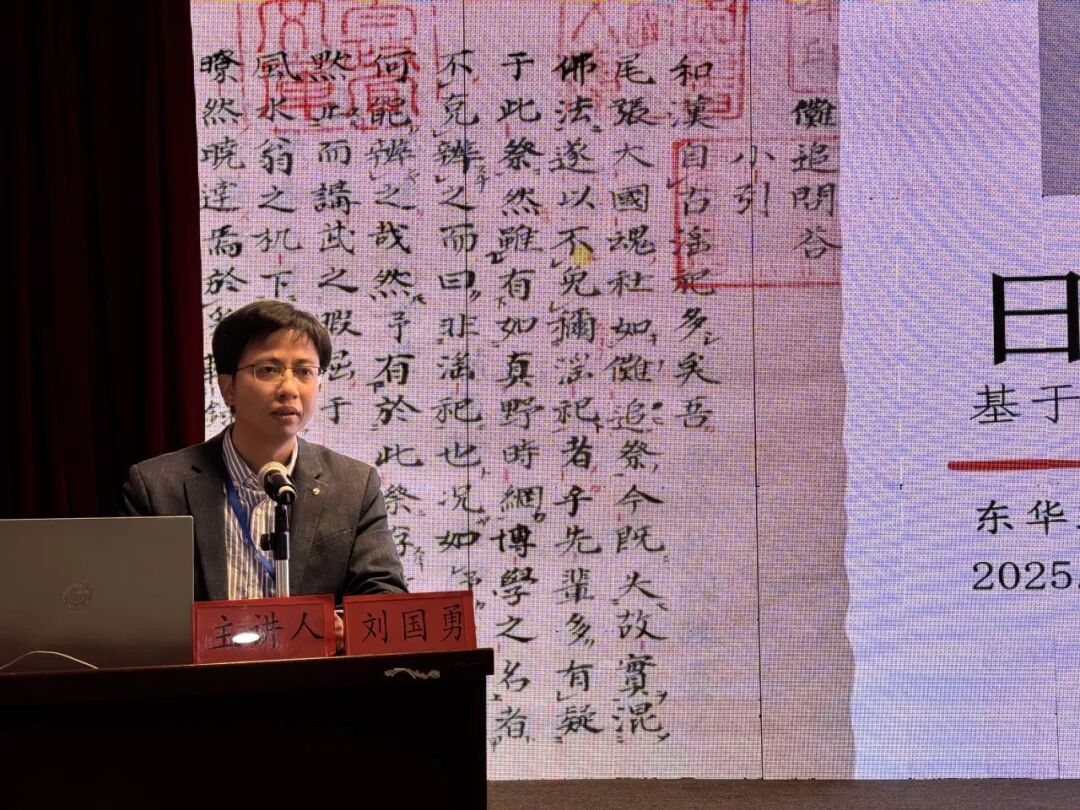 儺追問荅
小引
和漢自古滛祀多矣吾
尾張大國魂社如儺追祭今既大故實混
佛法遂以不免稱滛祀者乎先輩多有疑
于此祭然雖有如真野時網博學之名者
不克辨之而曰非滛祀也况如
何能辨之哉然予有於此祭
黙止而講武之暇屈于
風水翁之机下
瞭然曉達焉於
日
基于
东华
2025
主讲人
刘国勇